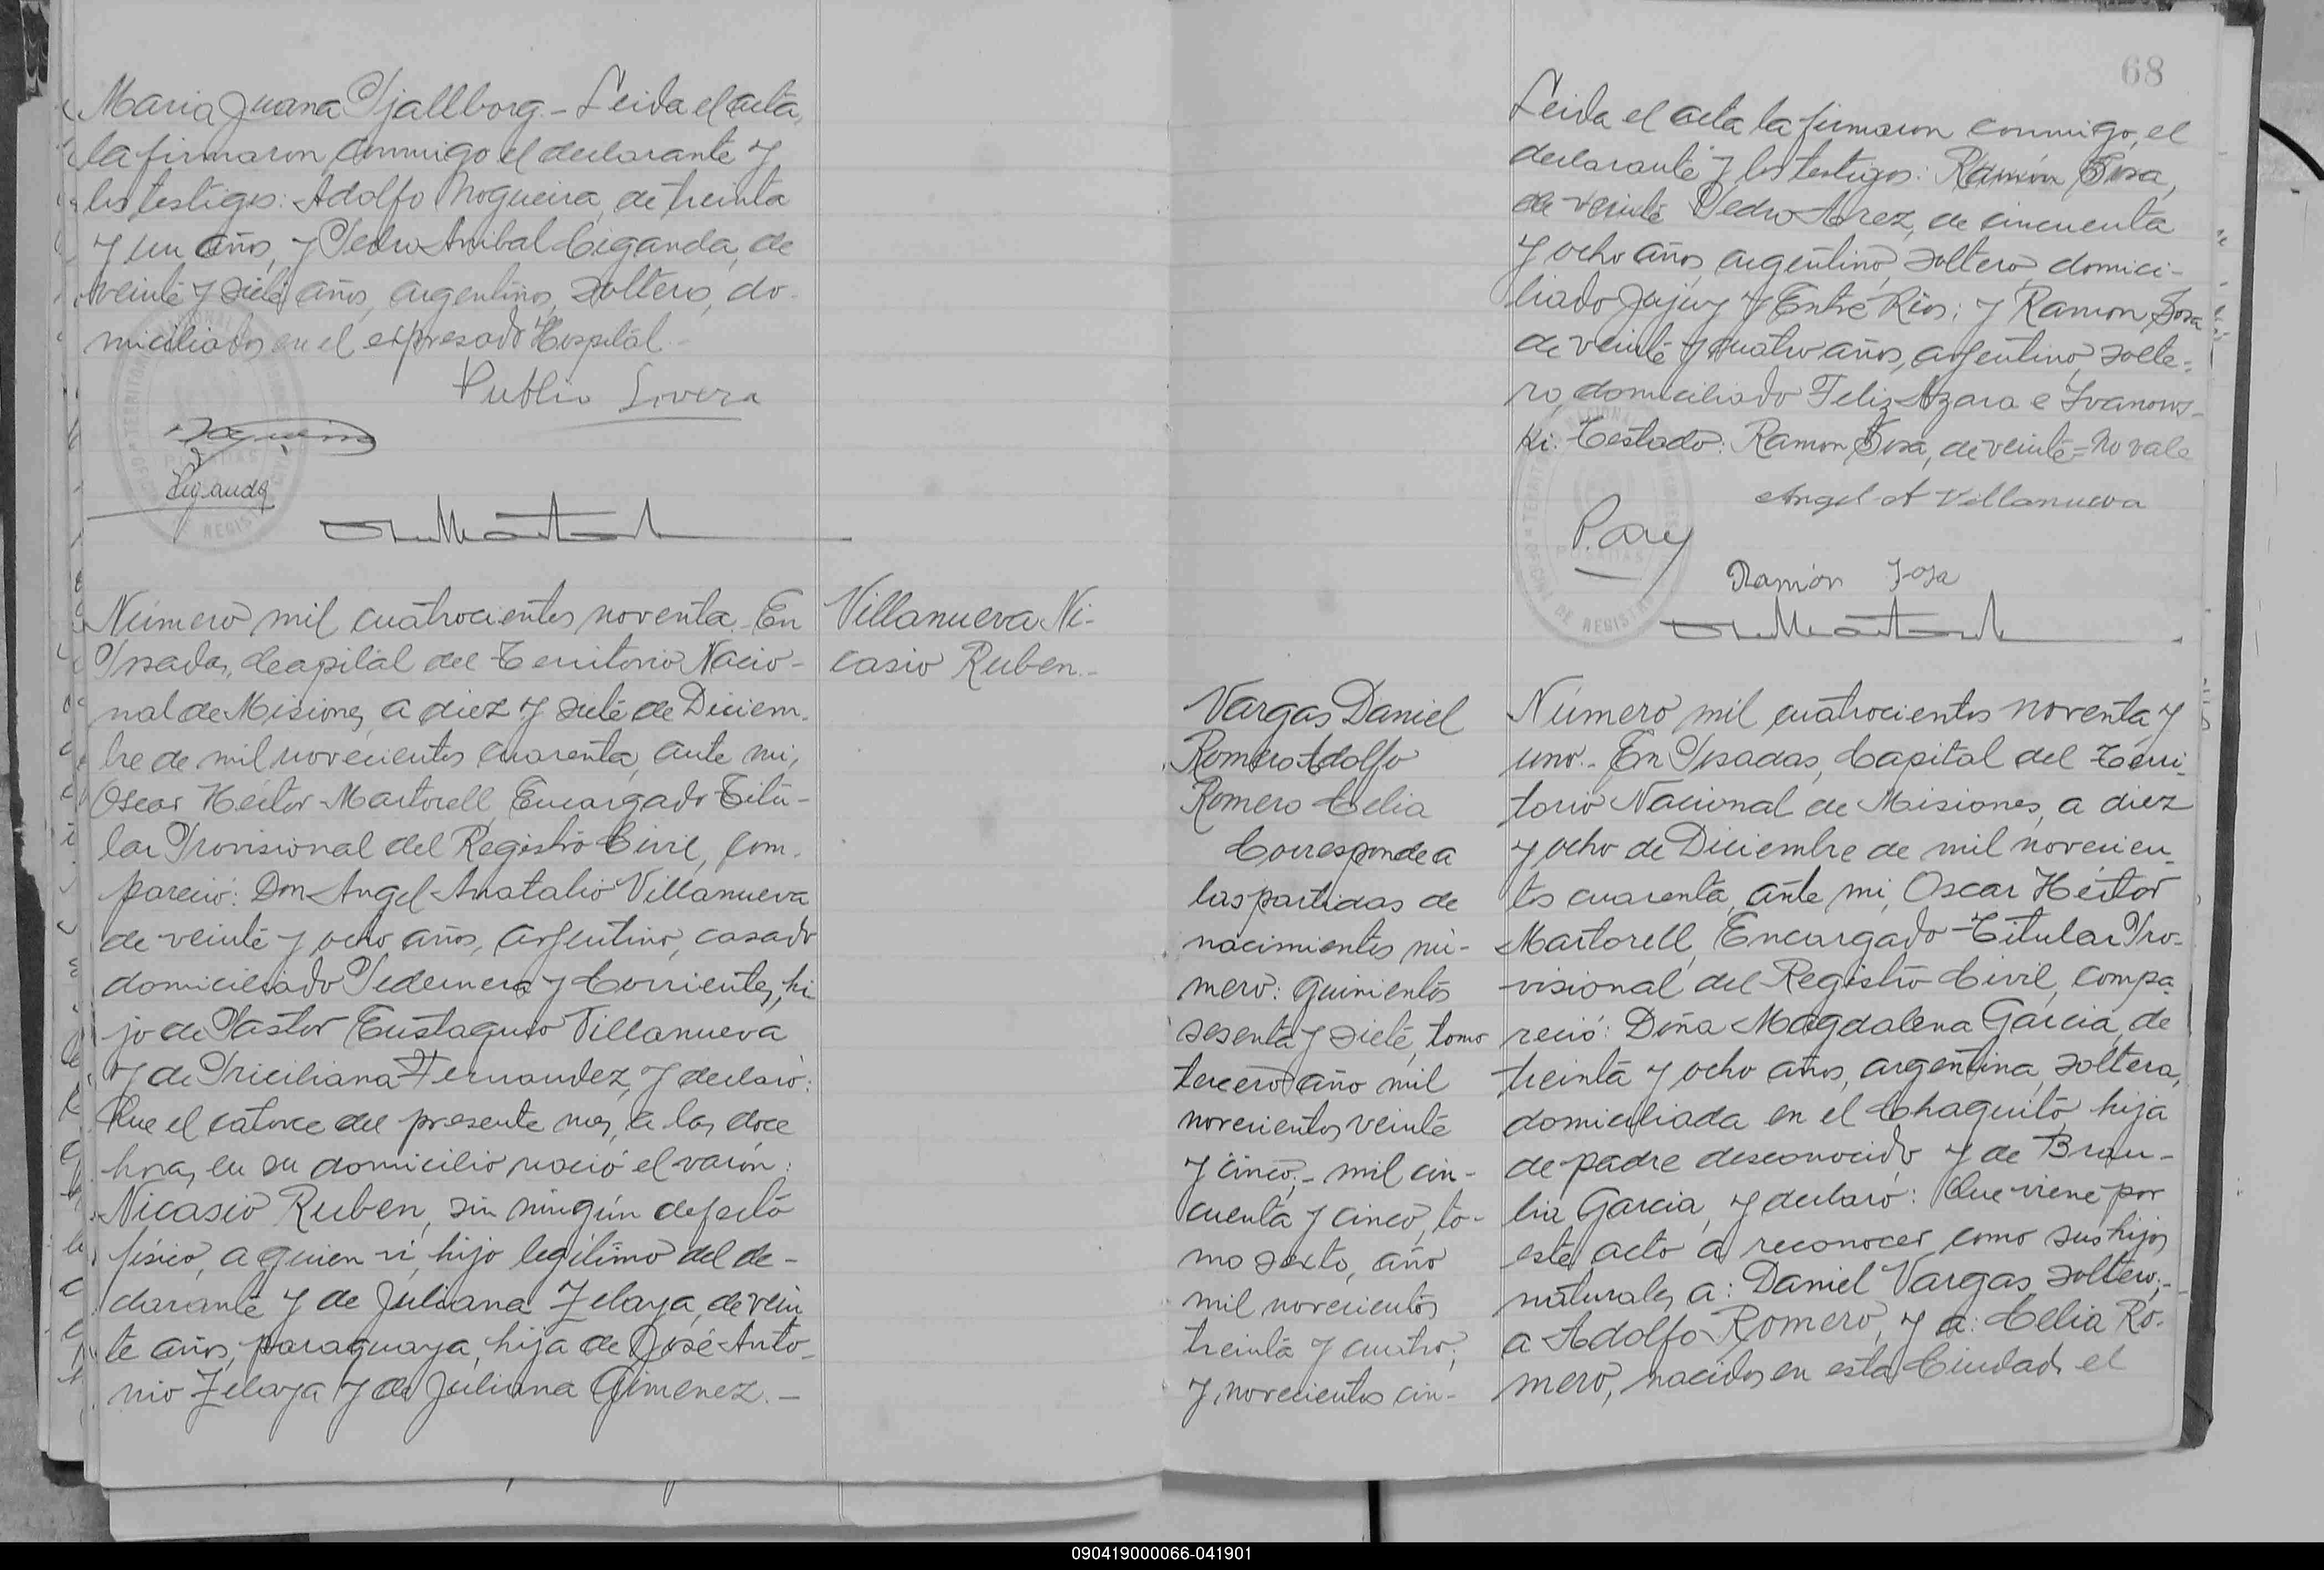 Maria Juana Pjallborg.- Leida el acta,
la firmaron conmigo el declarante y
los testigos: Adolfo Nogueira, de treinta
y un años, y Pedro Anibal Ciganda, de
veinte y siete años, argentinos, solteros, do-
miciliados en el expresado Hospital.-
Publio Lovera
Ciganda
Número mil cuatrocientos noventa.- En
Posadas, Capital del Territorio Nacio-
nal de Misiones, a diez y siete de Diciem-
bre de mil novecientos cuarenta, ante mi,
Oscar Héctor Martorell, Encargado Titu-
lar Provisional del Registro Civil, com-
pareció: Don Angel Anatalio Villanueva
de veinte y ocho años, argentino, casado
domiciliado Pedernera y Corrientes, hi
jo de Pastor Eustaquio Villanueva
y de Priciliana Fernandez, y declaró:
Que el catorce del presente mes, a las doce
horas, en su domicilio nació el varón:
Nicasio Ruben, sin ningún defecto
físico, a quien vi, hijo legítimo del de-
clarante y de Juliana Zelaya, de vein
te años, paraguaya, hija de José Anto-
nio Zelaya y de Juliana Gimenez.-
Villanueva Ni-
casio Ruben.-
68
Leida el acta la firmaron conmigo, el
declarante y los testigos: Ramón Sosa,
de veinte Pedro Arez, de cincuenta
y ocho años, argentino, soltero, domici-
liado Jujuy y Entre Rios; y Ramon Sosa
de veinte y cuatro años, argentino, solte-
ro, domiciliado Feliz Azara e Ivanows-
ki. Testado: Ramon Sosa, de veinte= No vale
Angel A Villanueva
Ramón Sosa
Vargas Daniel
Romero Adolfo
Romero Celia
Corresponde a
las partidas de
nacimientos nú-
mero: quinientos
sesenta y siete, tomo
tercero año mil
novecientos veinte
y cinco;- mil cin-
cuenta y cinco, to-
mo sexto, año
mil novecientos
treinta y cuatro;
y, novecientos cin-
Número mil cuatrocientos noventa y
uno.- En Posadas, Capital del Terri-
torio Nacional de Misiones, a diez
y ocho de Diciembre de mil novecien-
tos cuarenta, ante mi, Oscar Héctor
Martorell, Encargado Titular Pro-
visional del Registro Civil, compa-
reció: Doña Magdalena Garcia, de
treinta y ocho años, argentina, soltera,
domiciliada en el Chaquito, hija
de padre desconocido y de Brau-
lia Garcia, y declaró: Que viene por
este acto a reconocer como sus hijos
naturales a: Daniel Vargas, soltero;-
a Adolfo Romero, y a: Celia Ro-
mero, nacidos en esta Ciudad, el
090419000066-041901